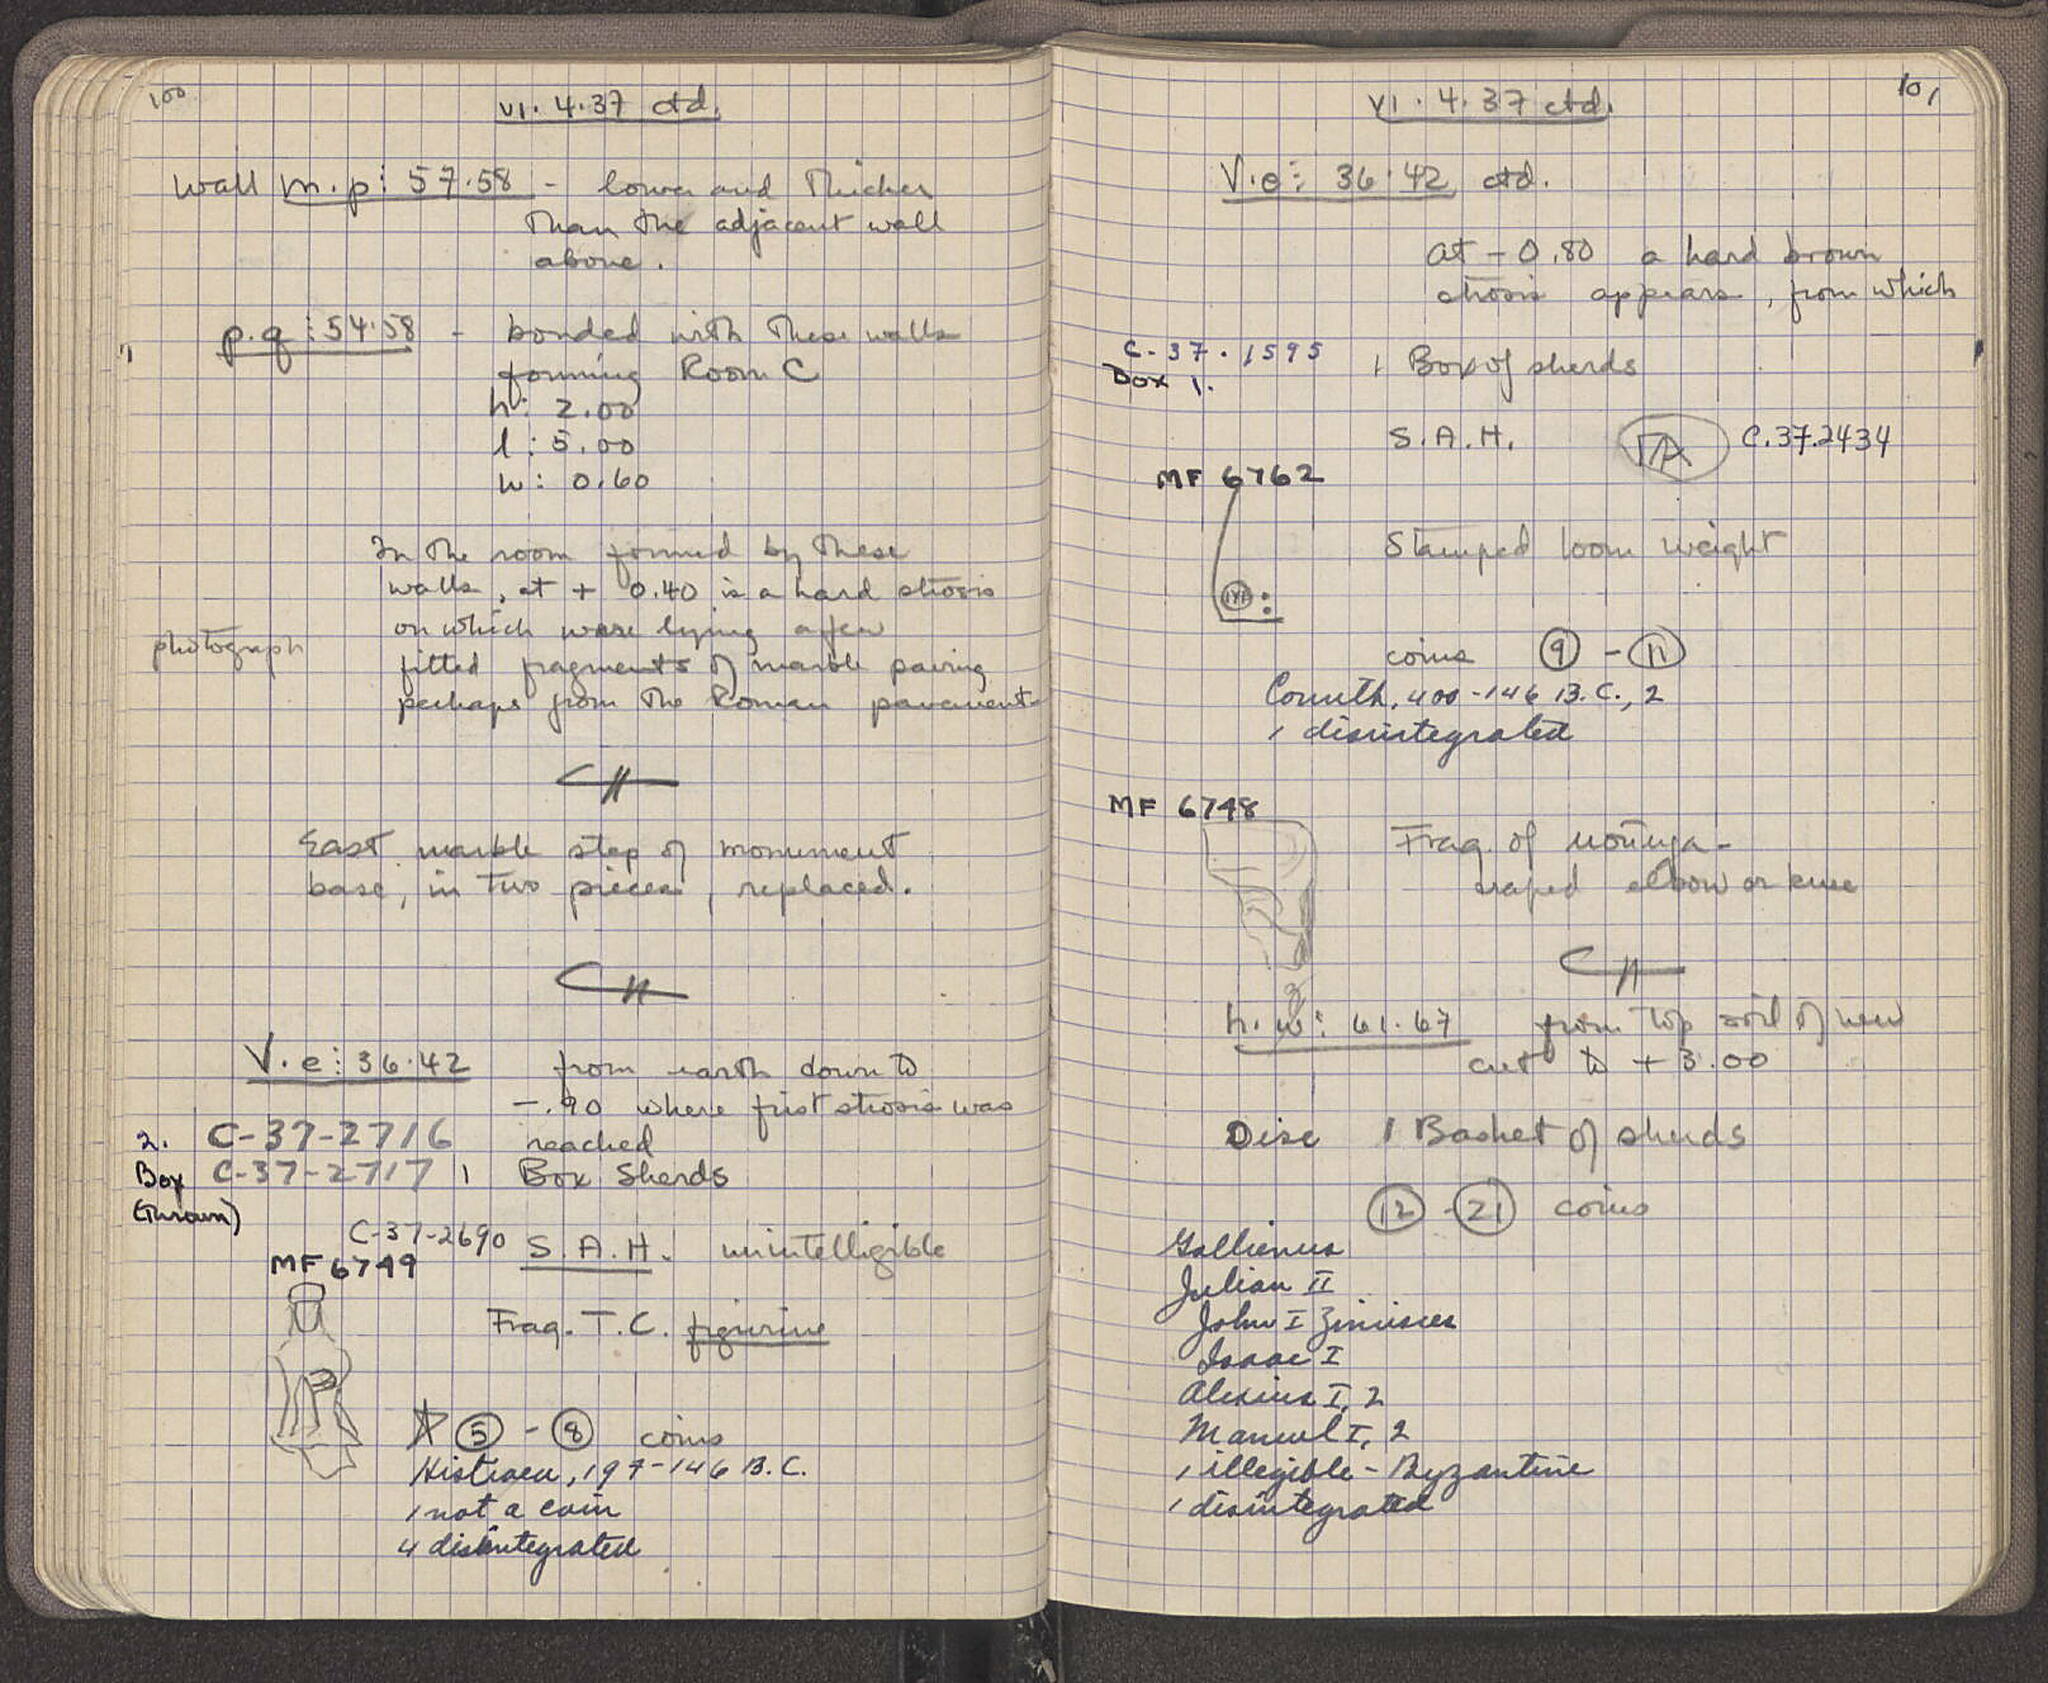 100
VI. 4. 37 ctd.
Wall m.p: 57.58 - lower and thicker
than the adjacent wall
above.
p.q: 54.58 - bonded with these walls
forming Room C
h: 2.00
l: 5.00
w: 0.60
In the room formed by these
walls, at + 0.40 is a hard strosis
on which were lying a few
photograph
fitted fragments of marble paving
perhaps from the Roman pavement
East marble step of monument
base, in two pieces, replaced.
V.e: 36.42 from earth down to
-.90 where first strosis was
2. C-37-2716 reached
Box C-37-2717 1 Box Sherds
(thrown)
C-37-2690 S.A.H. unintelligible
MF 6749
Frag. T.C. figurine
5 - 8 coins
Histiaea, 197-146 B.C.
1 not a coin
4 disintegrated
101
VI. 4. 37 ctd.
V.e: 36.42 ctd.
at - 0.80 a hard brown
strosis appears, from which
C-37.1595 1 Box of sherds
Box 1.
S.A.H. C.37.2434
MF 6762
Stamped loom weight
coins 9 - 11
Corinth, 400-146 B.C., 2
1 disintegrated
MF 6748
Frag. of
draped elbow or knee
h.w: 61.67 from top soil of new
cut to + 3.00
Disc 1 Basket of sherds
12 - 21 coins
Gallienus
Julian II
John I Zimisces
Isaac I
Alexius I, 2
Manuel I, 2
1 illegible - Byzantine
1 disintegrated